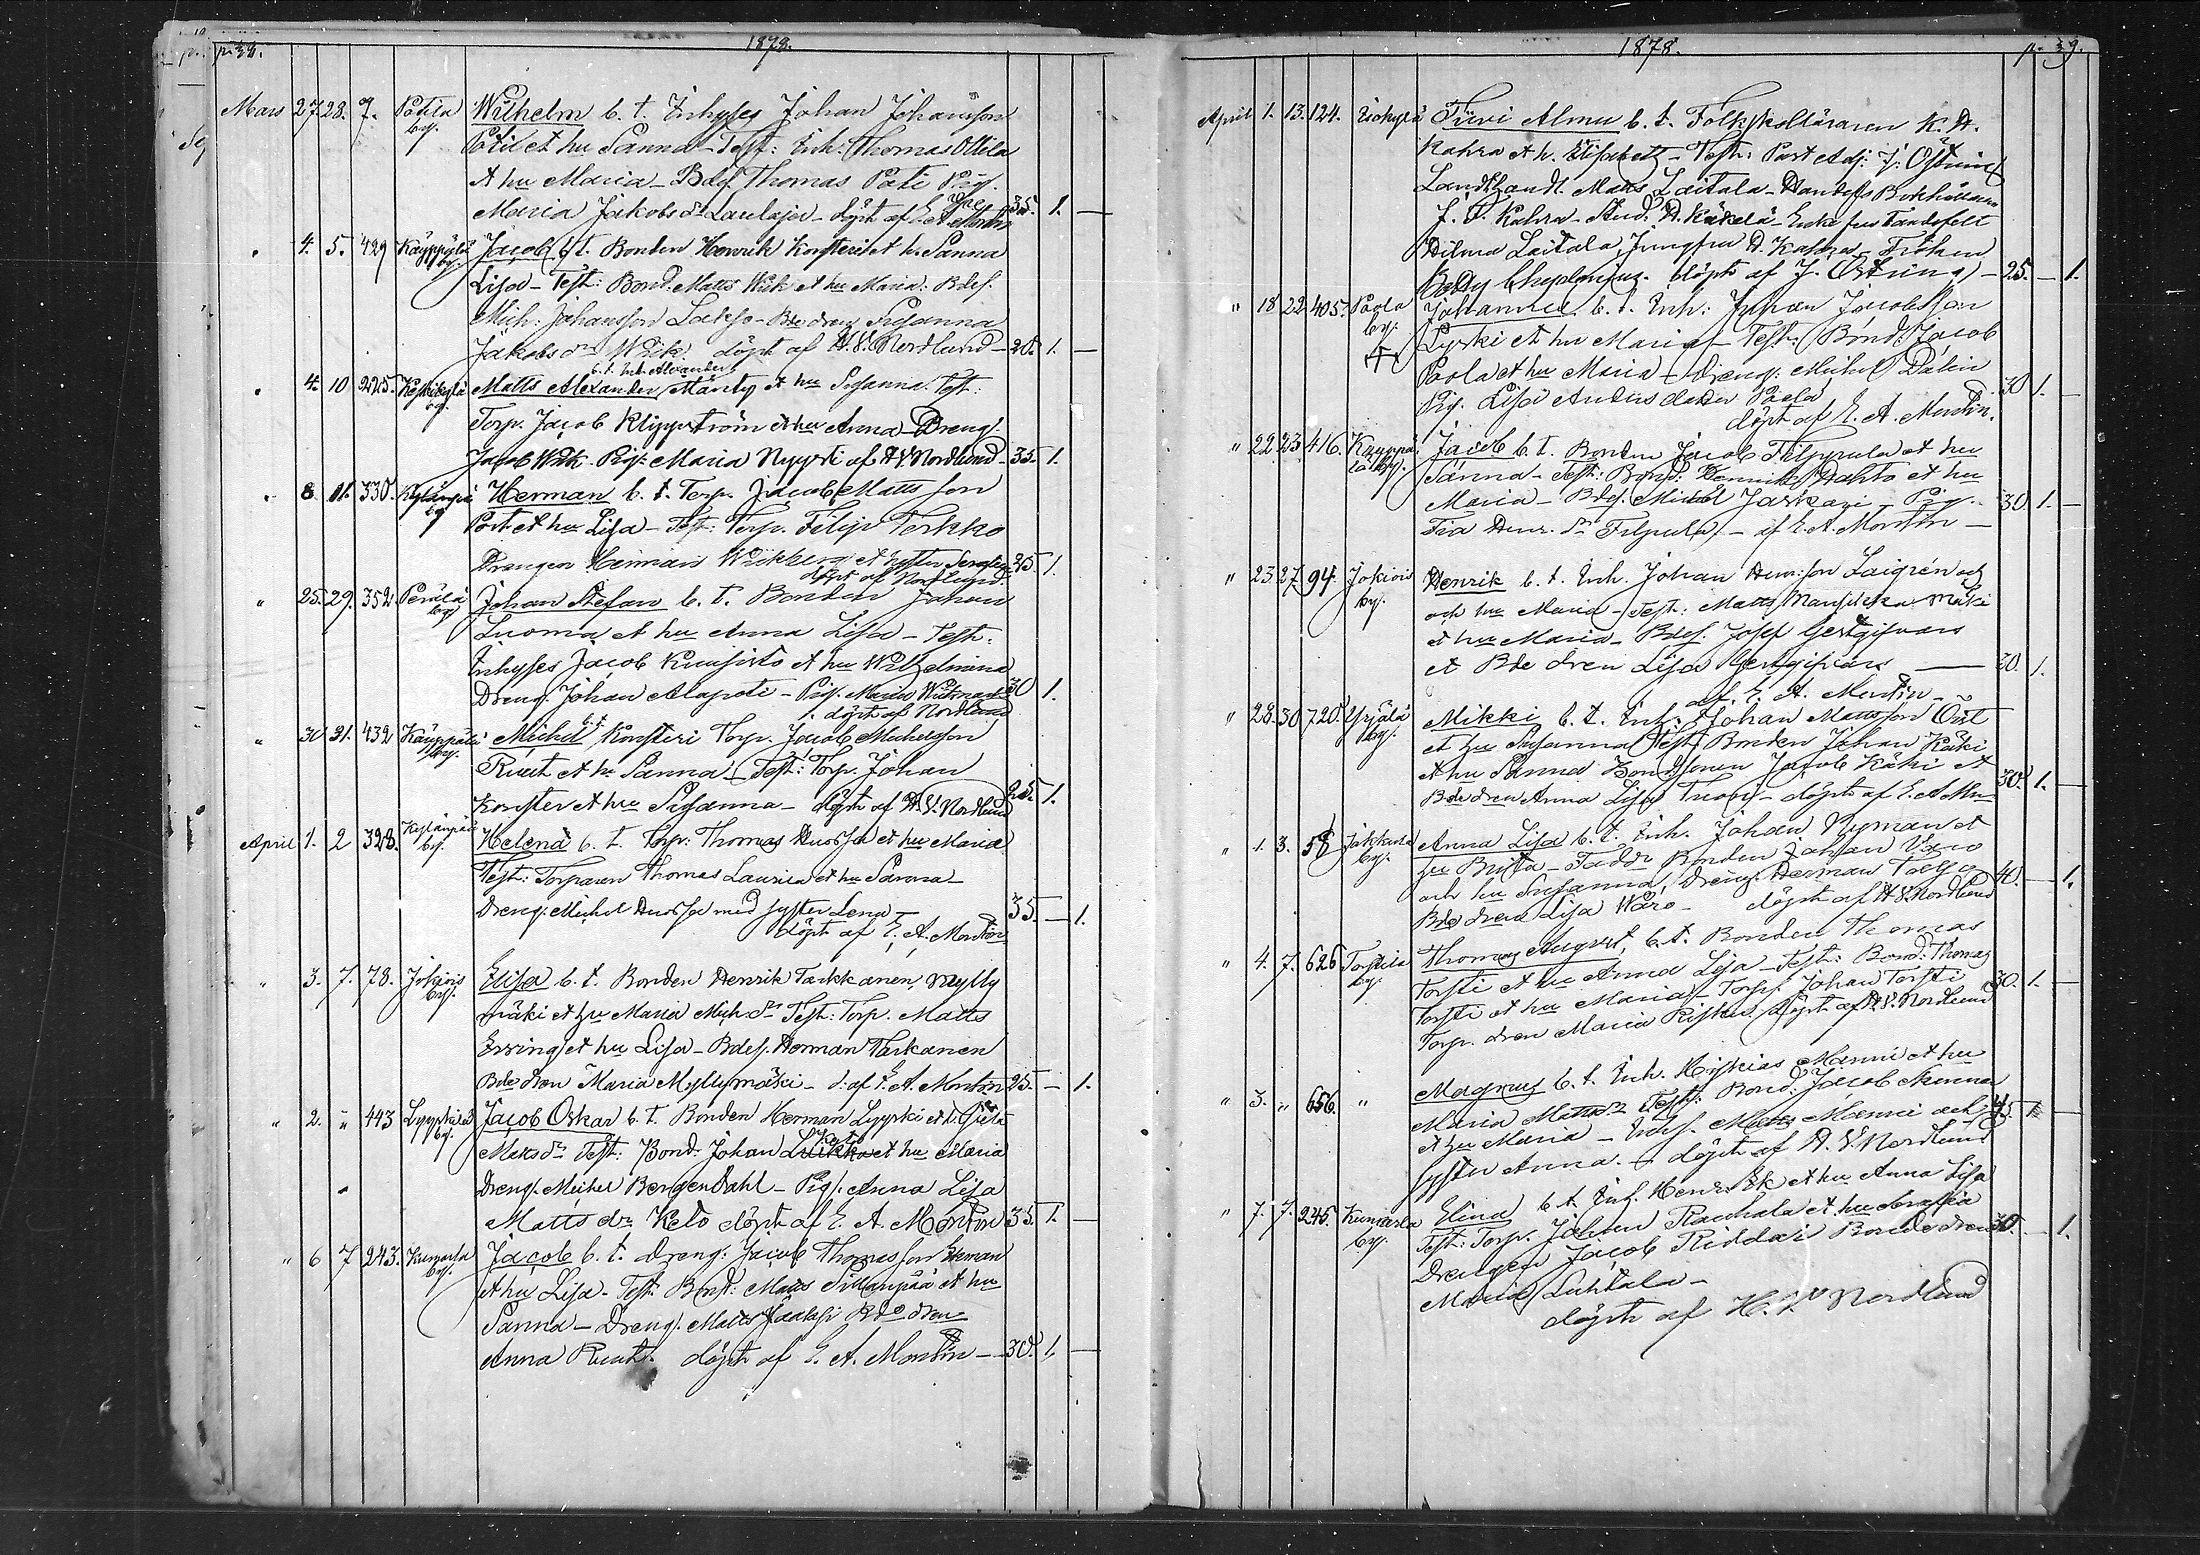 p. 38.
1878.
Mars 27. 28. 9. Potila by. Wilhelm b. t. Inhyses Johan Johansson
Potil et hu Sanna - Test: Inh: Thomas Ottila
et hu Maria - Bdes. Thomas Poti Pig.
Maria Jakobs dr Laulaja - döpt af E. A. Montin 35. 1. —
4. 5. 429 Käyppälä by. Jacob b. t. Bonden Henrik Kortteri et h. Sanna
Lisa - Test: Bond. Matts Wik et hu Maria. Bdes.
Mich: Johansson Lakso - Bde dren Susanna
Jakobs dr Wiik. döpt af H. V. Nordlund - 20. 1. —
b. t. Inh. Alexander
4. 10 225. Keskikylä by. Matts Alexander Mänty et hu Susanna. Test:
Torp. Jacob Klippström et hu Anna Dreng.
Jacob Wik. Pig. Maria Nyysti af H. V. Nordlund - 35. 1.
8. 11. 330. Kylänpää by Herman b. t. Torp. Jacob Mattsson
Port et hu Lisa - Test: Torp. Filip Terkko
Drengen Herman Wikberg et syster Serafia 25. 1.
döpt af Nordlund
25. 29. 352 Perälä by Johan Stefan b. t. Bonden Johan
Luoma et hu Anna Lisa - Test:
Inhyses Jacob Kuusisto et hu Wilhelmina
Dreng. Johan Alapoti - Pig. Maria Wikman 30 1.
döpt af Nordlund
30 31. 432 Käyppälä by. Michel b. t. Kortteri Torp. Jacob Michelsson
Ruut et hu Sanna - Test: Torp. Johan
Kortter et hu Susanna - döpt af H. V. Nordlund 1.
April 1. 2 328. Kylänpää by. Helena b. t. Torp. Thomas et hu Maria
Test: Torparen Thomas Laurila et hu Sanna -
Dreng. Michel med syster Lena 35 — 1.
döpt af E. A. Montin
3. 7. 78. Jokipii by. Elisa b. t. Bonden Henrik Tarkkanen, Mylly
mäki et hu Maria Mich. dr Test: Torp. Matts
et hu Lisa - Bdes. Herman Tarkanen
Bde dren Maria Myllymäki - d. af E. A. Montin 25. — 1.
" 2. " 443 Lyyskilä by. Jacob Oskar b. t. Bonden Herman Lyyski et h. Greta
Maks dr Test: Bond. Johan Keto et hu Maria
Dreng. Michel Bergendahl - Pig. Anna Lisa
Matts dr Keto döpt af E. A. Montin 35. 1. —
" 6 7 243. Kumarla by. Jacob b. t. Dreng. Jacob Thomasson Ekman
et hu Lisa - Test: Bond: Matts Sillanpää et hu
Sanna - Dreng. Matts Bde dren
Anna Ruut. döpt af E. A. Montin - 30. 1. —
1878.
p. 39.
April 1. 13. 124. Isokylä Tuvi Alma b. t. Folkskolläraren K. A.
Kahra et h. Elisabeth - Test: Past Adj: J. Östring
Landthandl. Matts Laitala - Handels Bokhållaren
J. Kahra - Stud. H. Käkelä - Enka fru Tandefelt
Hilma Laitala, Jungfru H. Kahra - Fröken
Chydenius. döpt af J. Östring - 25. — 1.
" 18 22 405. Paola by. Johannes b. t. Inh: Johan Jacobsson
Lyski et hu Maria - Test: Bond. Jacob
Paola et hu Maria - Dreng. Michel Dalin
Pig. Lisa Anders doter Paola 30 1. —
döpt af E. A. Montin.
" 22. 23 416. Käyppälä by. Jacob b. t. Bonden Jacob Filppula et hu
Sanna - Test: Bond: Henrik Dahto et hu
Maria - Bdes. Michel Jaskari - Pig. 30 1. —
Fia Henr. dr Filpula, - af E. A. Montin -
" 23. 27. 94. Jokipii by. Henrik b. t. Inh. Johan Henr:son Laigren och
och hu Maria - Test: Matts Mansikka mäki
et hu Maria - Bdes. Josef Gestgifvars
et Bde dren Lisa Gestgifvars — 30. 1.
af E. A. Montin -
" 28. 30 720. Yrjälä by. Mikki b. t. Inh. Johan Mattsson Öist
et hu Susanna Test: Bonden Johan Käki
et hu Sanna Bondsonen Jacob Käki et 30. 1. —
Bde dren Anna Lisa - döpt af E. A. Mn
" 1. 3. 58 Jakkula by. Anna Lisa b. t. Inh. Johan Nyman et
hu Brita - Faddr. Bonden Johan Varo
och hu Susanna, Dreng. Herman 40. — 1.
Bde dren Lisa Waro - döpt af H. V. Nordlund
" 4. 7. 626 Torstila by. Thomas August, b. t. Bonden Thomas
Torsti et hu Anna Lisa - Test: Bond: Thomas
Torsti et hu Maria - Torp. Johan Torsti 30. 1. —
Torp. dren Maria döpt af H. V. Nordlund
" 3. " 656. " Magnus b. t. Inh. Hiskias Manni et hu
Maria Matts dr Test: Bond. Jacob
et hu Maria - Matts Manni och 45. 1.
syster Anna. - döpt af H. V. Nordlund
" 7. 7. 245. Kumarla by. Elina b. t. Inh. Henr. Ek et hu Anna Lisa
Test: Torp. Johan Rauhala et hu Serafia
Drengen Jacob Riddar Bonde dren 30. — 1.
Maria Luhtala -
döpt af H. V. Nordlund